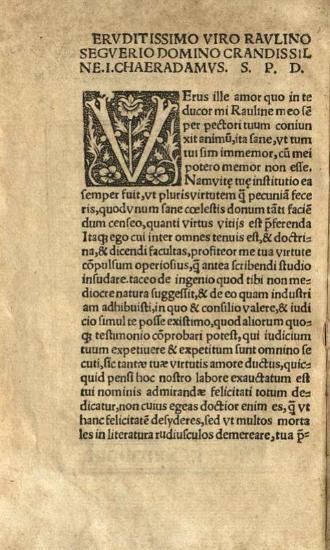 ERVDITISSIMO VIRO RAVLINO
SEGVERIO DOMINO CRANDISSIL
NE.I.CHAERADAMVS. S. P. D.
VErus ille amor quo in te
ducor mi Rauline meo sē
per pectori tuum coniun
xit animũ, ita sane, vt tum
tui sim immemor, cũ mei
potero memor non esse.
Nam vitę tuę institutio ea
semper fuit, vt pluris virtutem q̃ pecuniã fece
ris, quod vnum sane cœlestis donum tãti faciē
dum censeo, quanti virtus vitijs est p̃ferenda
Itaq; ego cui inter omnes tenuis est, & doctri⸗
na, & dicendi facultas, profiteor me tua virtute
cõpulsum operiosius, q̃ antea scribendi studio
insudare. taceo de ingenio quod tibi non me⸗
diocre natura suggessit, & de eo quam industri
am adhibuisti, in quo & consilio valere, & iudi
cio simul te posse existimo, quod aliorum quo⸗
q; testimonio cõprobari potest, qui iudicium
tuum expetiuere & expetitum sunt omnino se
cuti, sic tantæ tuæ virtutis amore ductus, quic⸗
quid pensi hoc nostro labore exauctatum est
tui nominis admirandæ felicitati totum de⸗
dicatur, non cuius egeas doctior enim es, q̃ vt
hanc felicitatē desyderes, sed vt multos morta
les in literatura rudiusculos demereare, tua p̃⸗